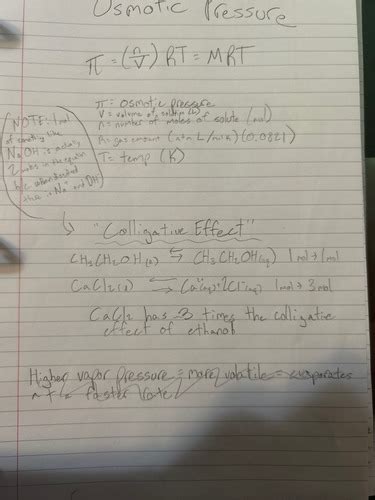 Osmotic Pressure
π = (n/V) RT = MRT
π: Osmotic pressure
V = volume of solution (L)
n = number of moles of solute (mol)
R = gas constant (atm·L/mol·K) (0.0821)
T = temp (K)
NOTE: 1 mol
of something like
NaOH is actually
2 moles in the equation
b/c
Na⁺ and OH⁻
"Colligative Effect"
CH₃CH₂OH(l) ⇆ CH₃CH₂OH(aq) 1mol → 1mol
CaCl₂(s) ⇆ Ca²⁺(aq)+2Cl⁻(aq) 1mol → 3mol
CaCl₂ has 3 times the colligative
effect of ethanol
Higher vapor pressure = more volatile = evaporates
at faster rate